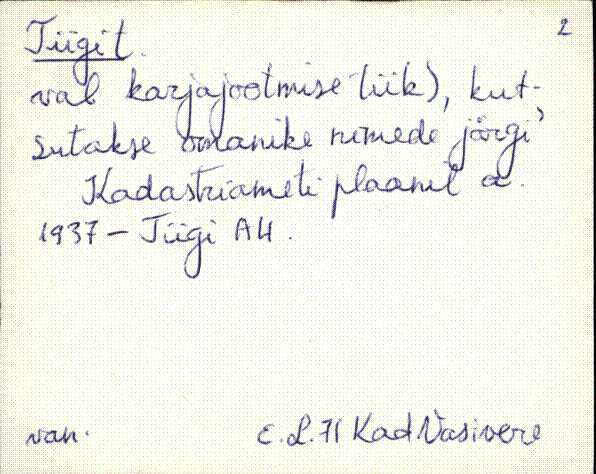 Tiigit. 2
val karjajootmise tiik), kut-
sutakse omanike nimede järgi
Kadastriameti plaanil a.
1937 - Tiigi AH.
van. E.L.71 Kad Vasivere